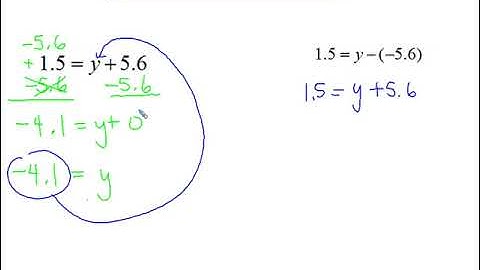 -5.6
+ 1.5 = y + 5.6
-5.6 -5.6
-4.1 = y + 0
-4.1 = y
1.5 = y - (-5.6)
1.5 = y + 5.6